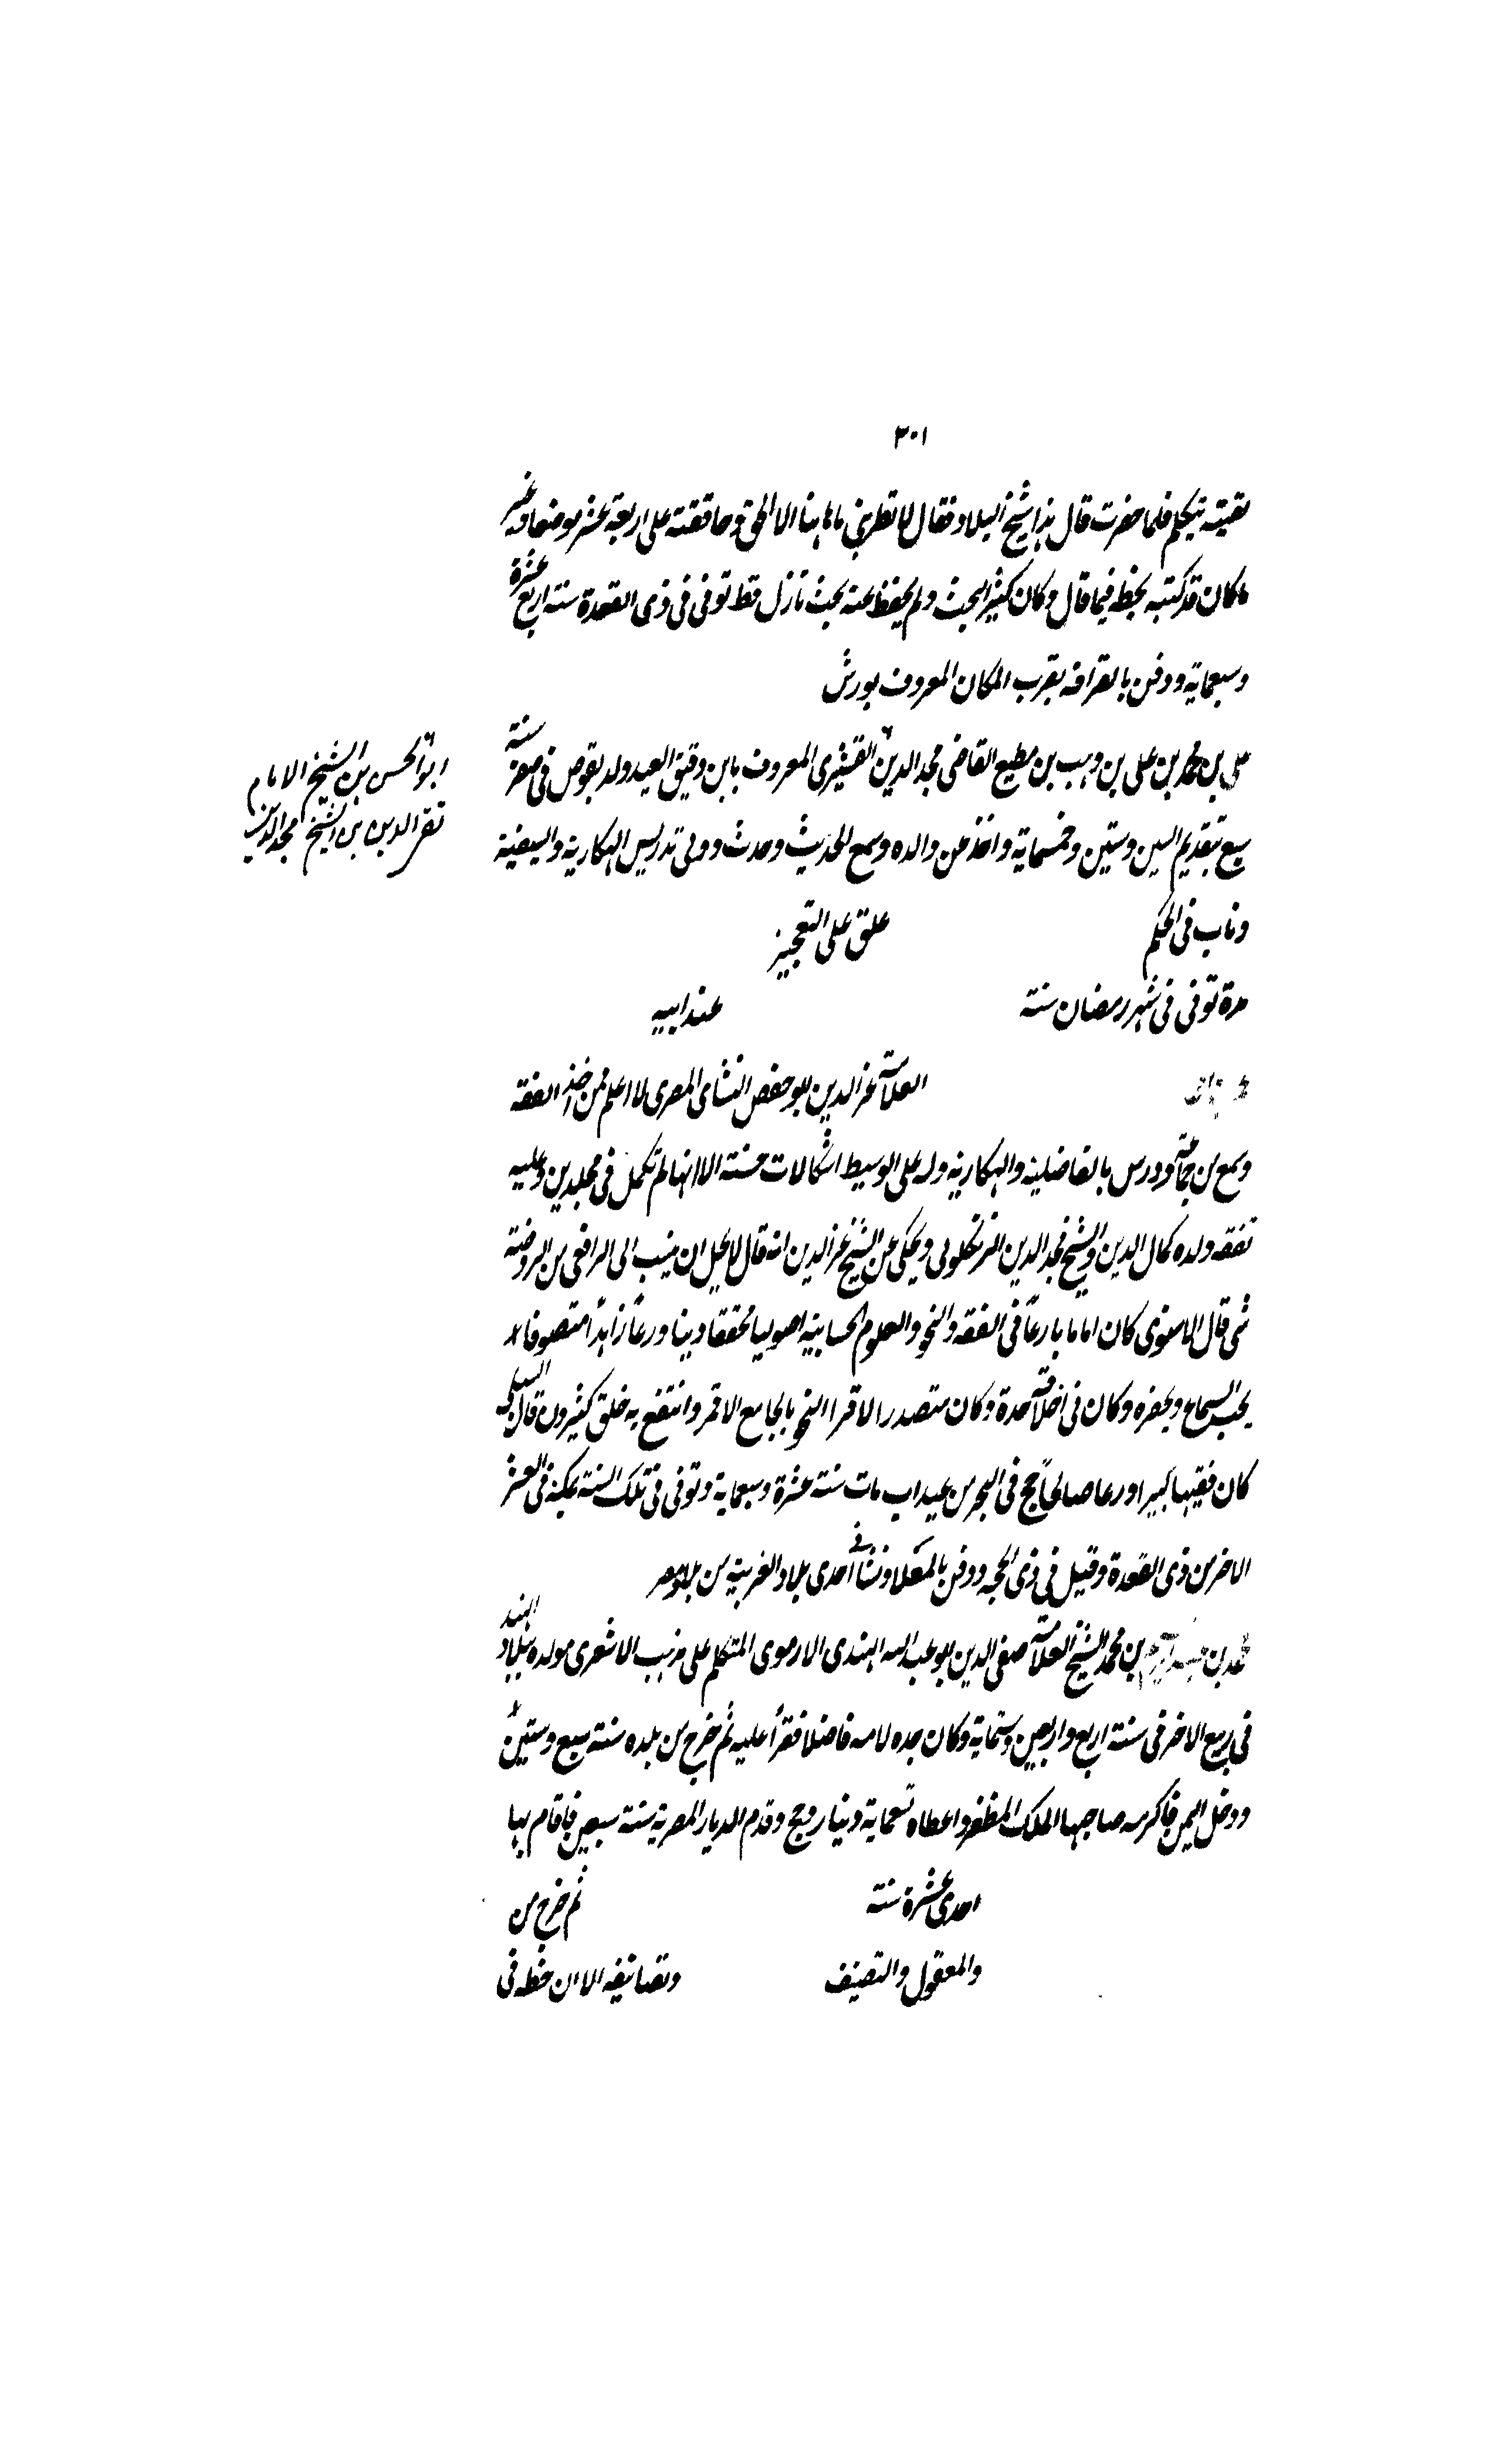 ٣٠١
بقيته يتكلم فلما حضرت قال هذا شيخ البلاد فقال لا تطربنى ما هاهنا الا الحق وحاققته على اربعة عشر موضعا وغير
ما كان قد كتبه بخطه فيما قال وكان كثير البحث ولم يحفظ عنه بحث نازل قط توفى فى ذى القعدة سنة اربع عشرة
وسبعماية ودفن بالقرافة بقرب المكان المعروف بورش
على بن محمد بن على بن وهب بن مطيع القاضى مجد الدين القشيرى المعروف بابن دقيق العيد ولد بقوص فى صفر سنة
ابو الحسن بن الشيخ الامام
تقى الدين بن الشيخ مجد الدين
سبع بتقديم السين وستين وخمسماية واخذ من والده وسمع الحديث وحدث وولى تدريس الهكارية والسيفية
وناب فى الحكم علق على التعجيز
مدة توفى فى شهر رمضان سنة عند ابيه
العلامة عز الدين ابو حفص النشاى المصرى لا اعلم ممن اخذ الفقه
وسمع من جماعة ودرس بالفاضلية والهكارية وله على الوسيط اشكالات حسنة الا انها لم تكمل فى مجلدين وعليه
تفقه ولده كمال الدين والشيخ مجد الدين الزنكلونى ويحكى عن الشيخ عز الدين انه قال لا يحل ان ينسب الى الرافعى من الروضة
شى قال الاسنوى كان اماما بارعاً فى الفقه والنحو والعلوم الحسابية اصوليا محققا دينا ورعاً زاهداً متصوفا
يحب السماع ويحضره وكان فى اخلاقه حدة وكان متصدرا لاقرا النحو بالجامع الاقمر وانتفع به خلق كثيرون قال السبكى
كان فقيها كبيرا ورعا صالحاً حج فى البحر من عيذاب مات سنة عشرة وسبعماية وتوفى فى تلك السنة بمكة فى العشر
الاخر من ذى القعدة وقيل فى ذى الحجه ودفن بالمعلا ونشا احدى بلاد الغربية من بلاد مصر
محمد بن بن محمد الشيخ العلامة صفى الدين ابو عبد الله الهندى الارموى المتكلم على مذهب الاشعرى مولده ببلاد الهند
فى ربيع الاخر فى سنة اربع واربعين وستماية وكان جده لامه فاضلا فقرأ عليه ثم خرج من بلده سنة سبع وستين
ودخل اليمن فاكرمه صاحبها الملك المظفر واعطاه تسعماية دينار وحج وقدم الديار المصرية سنة سبعين فاقام بها
احدى عشرة سنة ثم خرج من
والمعقول والتصنيف وتصانيفه الا ان خطه فى